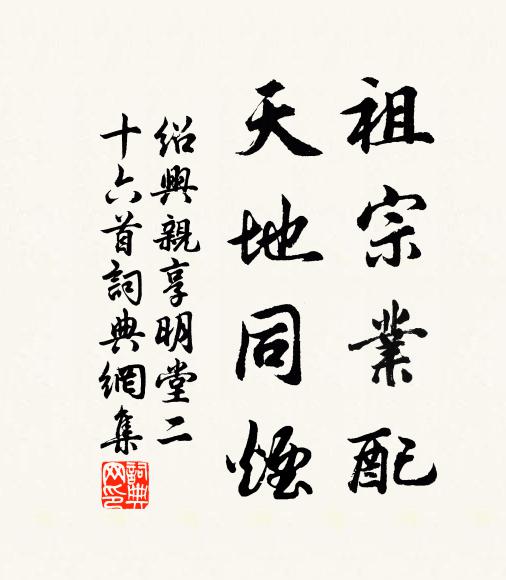 祖宗業配
天地同煙
紹興親享明堂二
十六首詞典網集
詞典網印